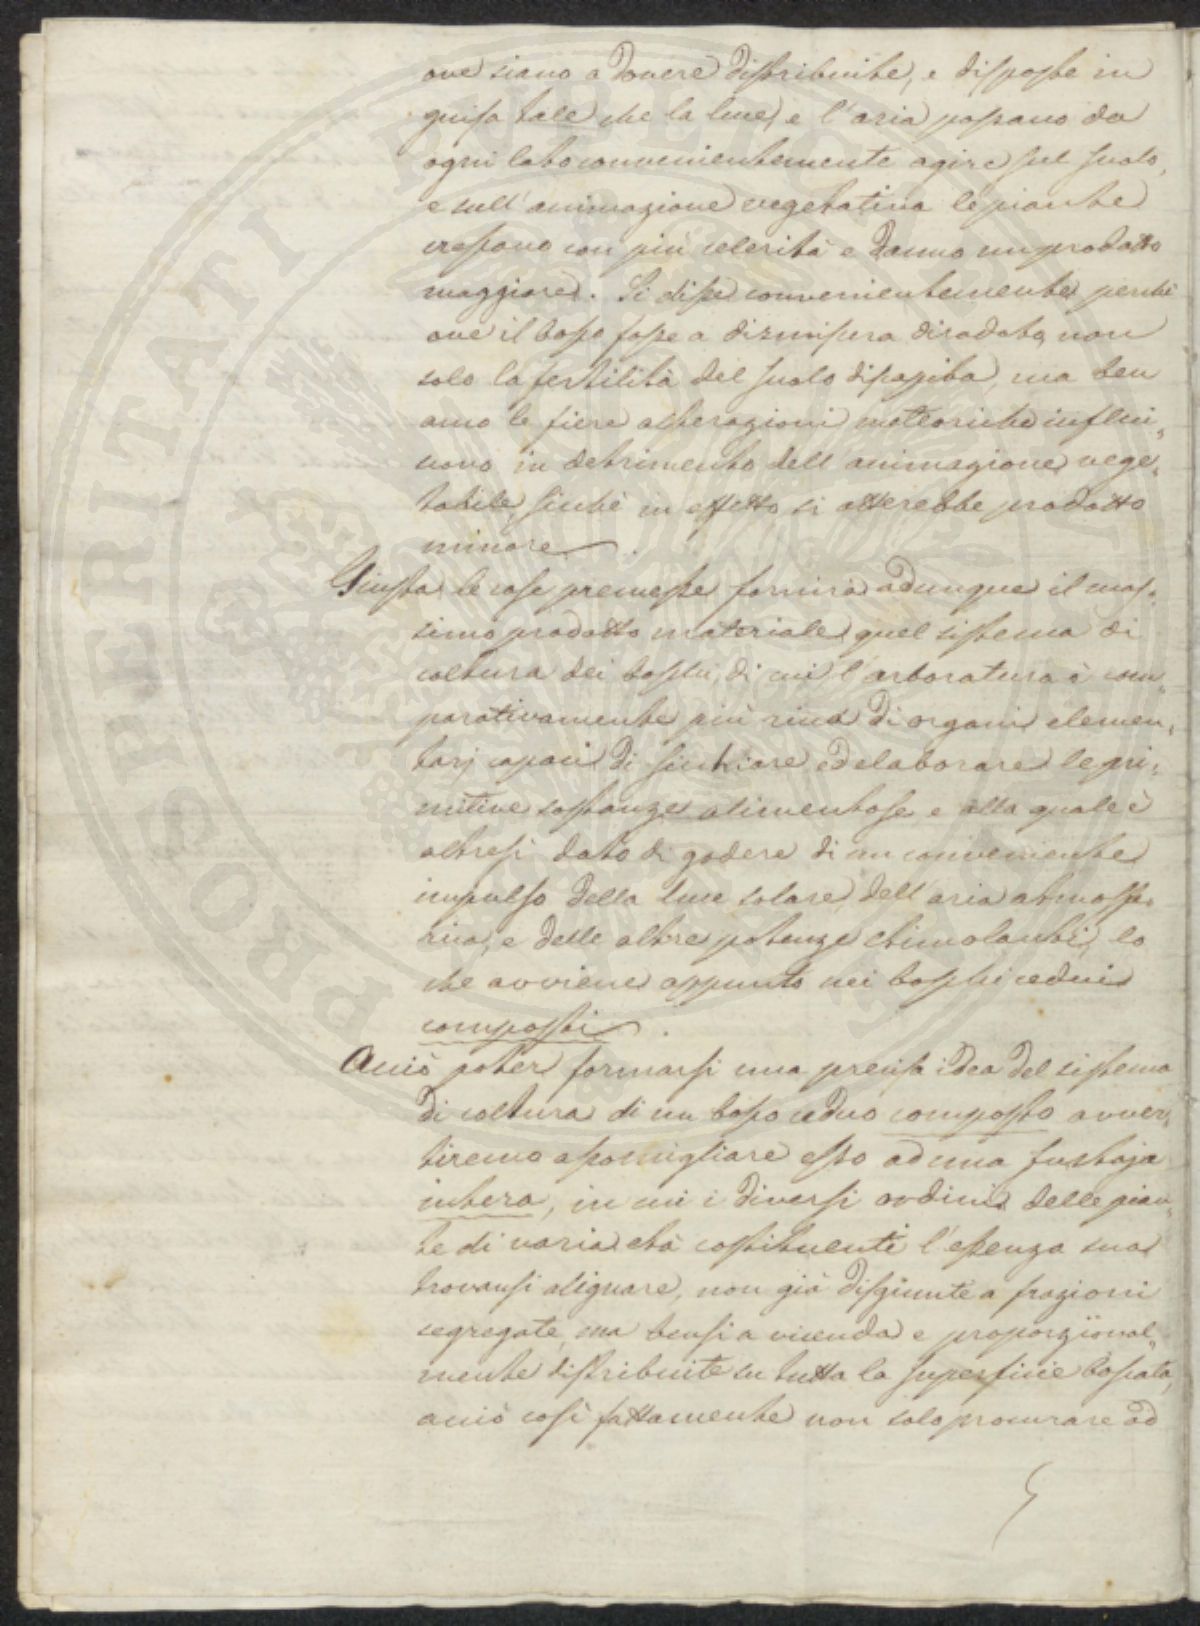 ove siano a dovere distribuite, e disposte in
guisa tale che la luce, e l'aria possano da
ogni lato convenientemente agire sul suolo,
e sull'animazione vegetativa le piante
crescano con più celerità e danno un prodotto
maggiore. Si disse convenientemente perchè
ove il bosco fosse a dismisura diradato, non
solo la fertilità del suolo dissipiba, ma ben
anco le fiere alterazioni meteoriche influi„
scono in detrimento dell'animazione vege„
tabile, sicchè in effetto si otterebbe prodotto
minore.
Giusta le cose premesse fornirà adunque il mas„
simo prodotto materiale quel sistema di
coltura dei boschi, di cui l'arboratura è com„
parativamente più ricca di organi elemen„
tarj capaci di succhiare ed elaborare le pri„
mitive sostanze alimentose e alla quale è
altresì dato di godere di un conveniente
impulso della luce solare, dell'aria atmosfe„
rica, e delle altre potenze stimolanti, lo
che avviene appunto nei boschi cedui
composti.
Acciò poter formarsi una precisa idea del sistema
di coltura di un bosco ceduo composto avver„
tiremo assomigliare esso ad una fustaja
intera, in cui i diversi ordini delle pian„
te di varia età costituenti l'essenza sua
trovansi alignare, non già disgiunte a frazioni
segregate, ma bensì a vicenda e proporzional„
mente distribuite su tutta la superficie boscata,
acciò così fattamente non solo procurare ad